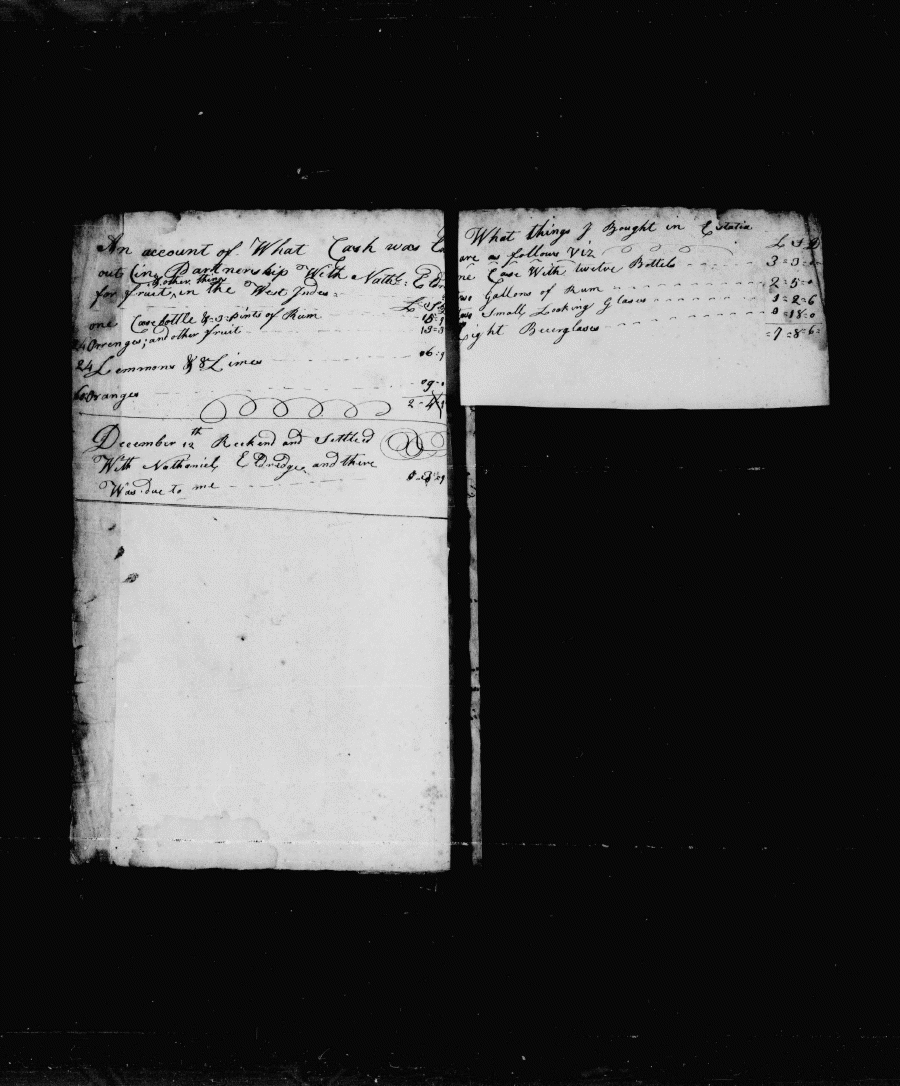 An account of What Cash was
out in Partnership With Nathl.
& other things
for fruit, in the West Judes
L S
one Case bottle & 3 pints of Rum
24 Orrenges; and other fruit 13=3
24 Lemmons & 8 Limes 06=9
Oranges 09
2-4
December 12th Reckend and Settled
With Nathaniel Eldredge, and there
Was due to me
What things J Bought in Estatia
are as follows Viz L S D
Case With twelve Bottels 3=3=
Gallons of Rum 2=5=0
Small Looking Glases 1=2=6
Eight Beerglases 0=18=0
=7=8=6=